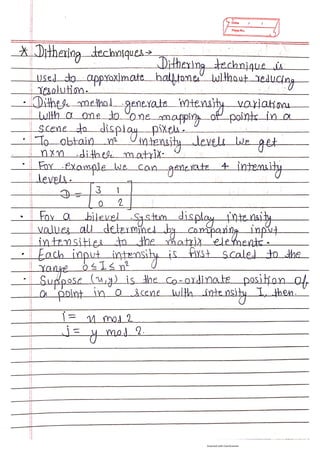 Date / /
Page No.
* Dithering techniques →
Dithering technique is
used to approximate halftones without reducing
resolution.
• Dither method generate intensity variations
with a one to one mapping of points in a
scene to display pixels.
• To obtain n² intensity levels we get
nxn dither matrix.
• For example we can generate 4 intensity
levels.
D = [ 3 1
0 2 ]
• For a bilevel system display intensity
values all determined by comparing input
intensities to the matrix elements.
• Each input intensity is first scaled to the
range 0 ≤ I ≤ n²
• Suppose (x,y) is the co-ordinate position of
a point in a scene with intensity I, then.
i = x mod 2
j = y mod 2.
Scanned with CamScanner